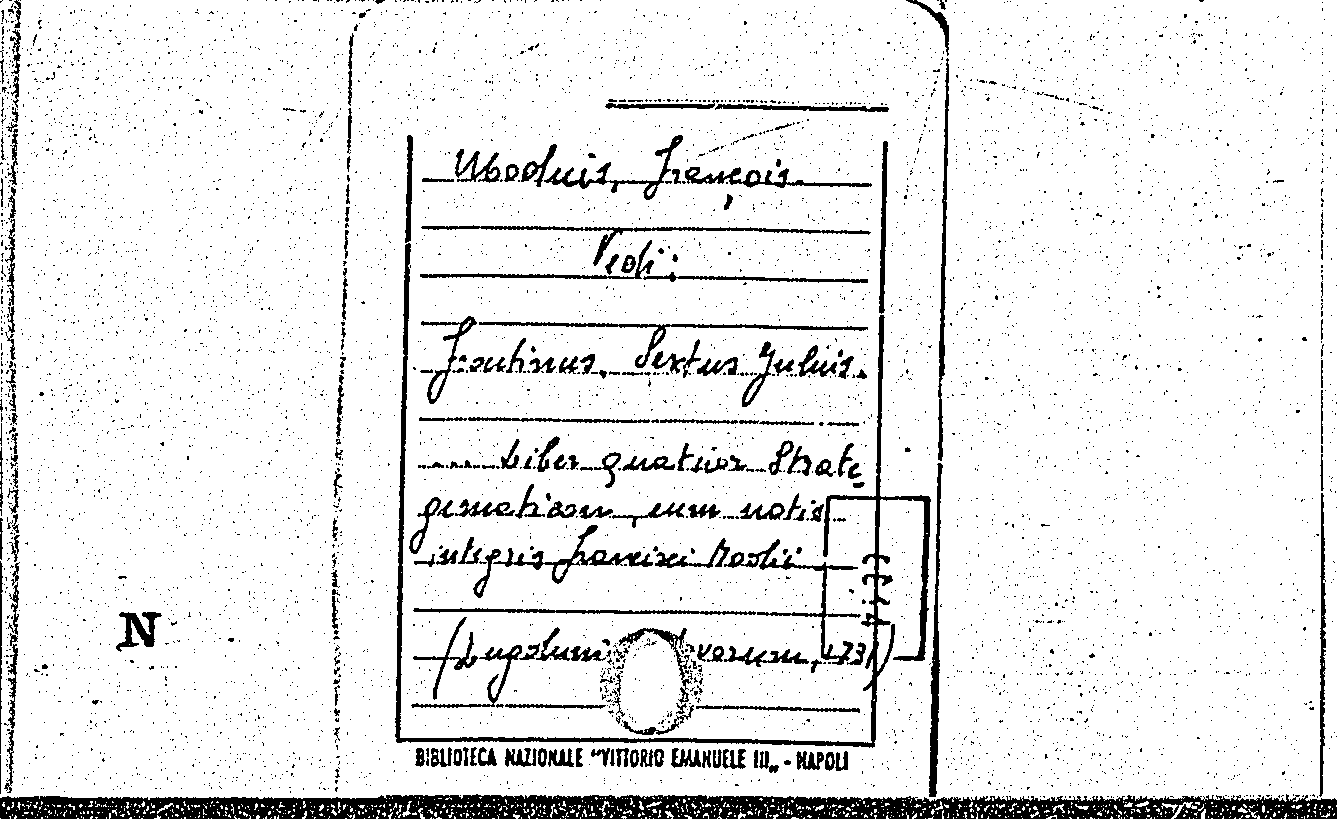 Modius, François.
Vedi:
Frontinus, Sextus Julius.
.... Liber quatuor Strate-
gematicon, cum notis
integris Francisci Modii
(Lugduni vorum, 1731)
N
BIBLIOTECA NAZIONALE "VITTORIO EMANUELE III„ - NAPOLI